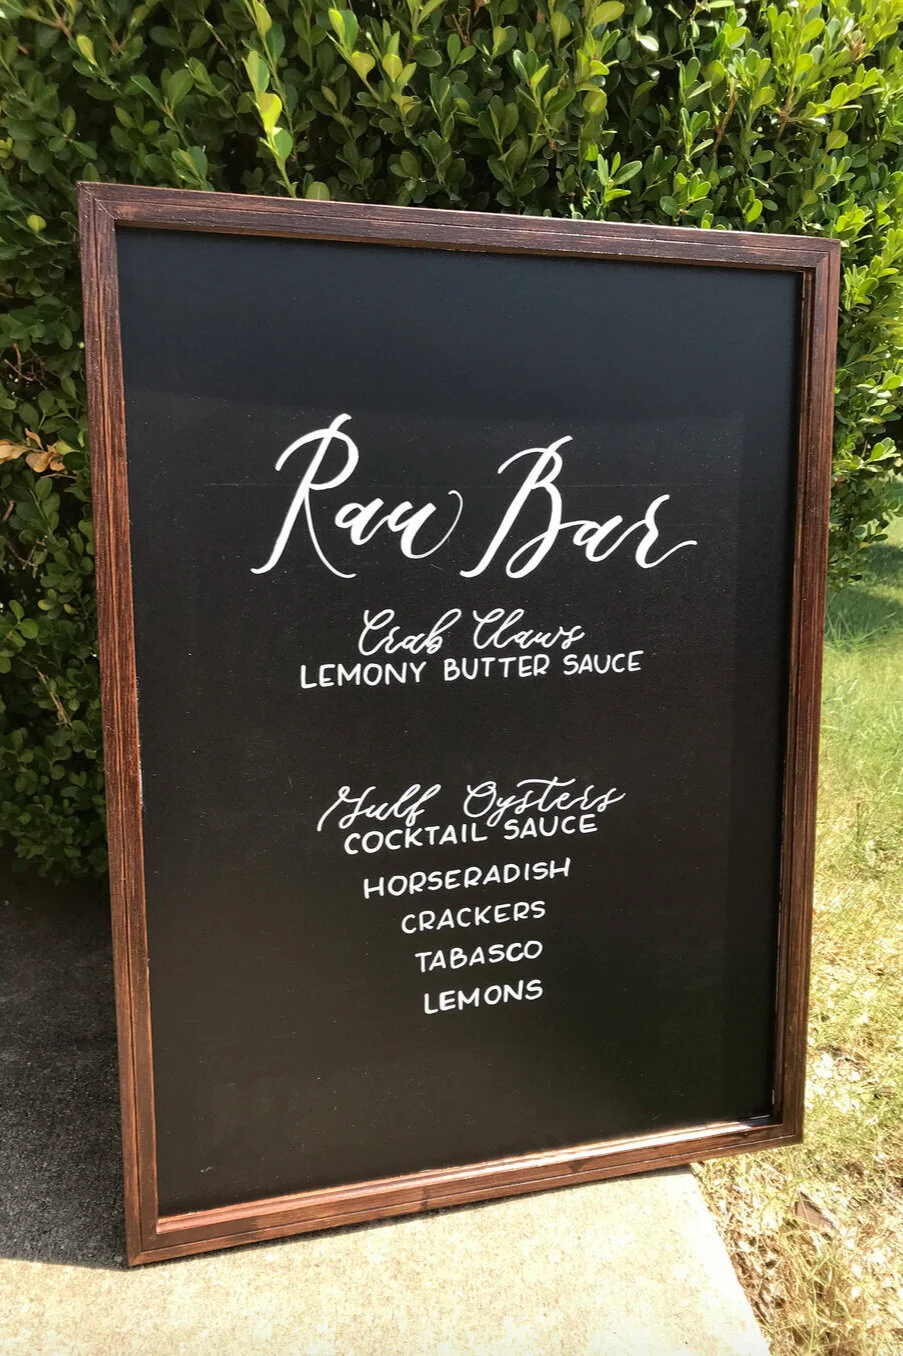 Raw Bar
Crab Claws
LEMONY BUTTER SAUCE
Gulf Oysters
COCKTAIL SAUCE
HORSERADISH
CRACKERS
TABASCO
LEMONS